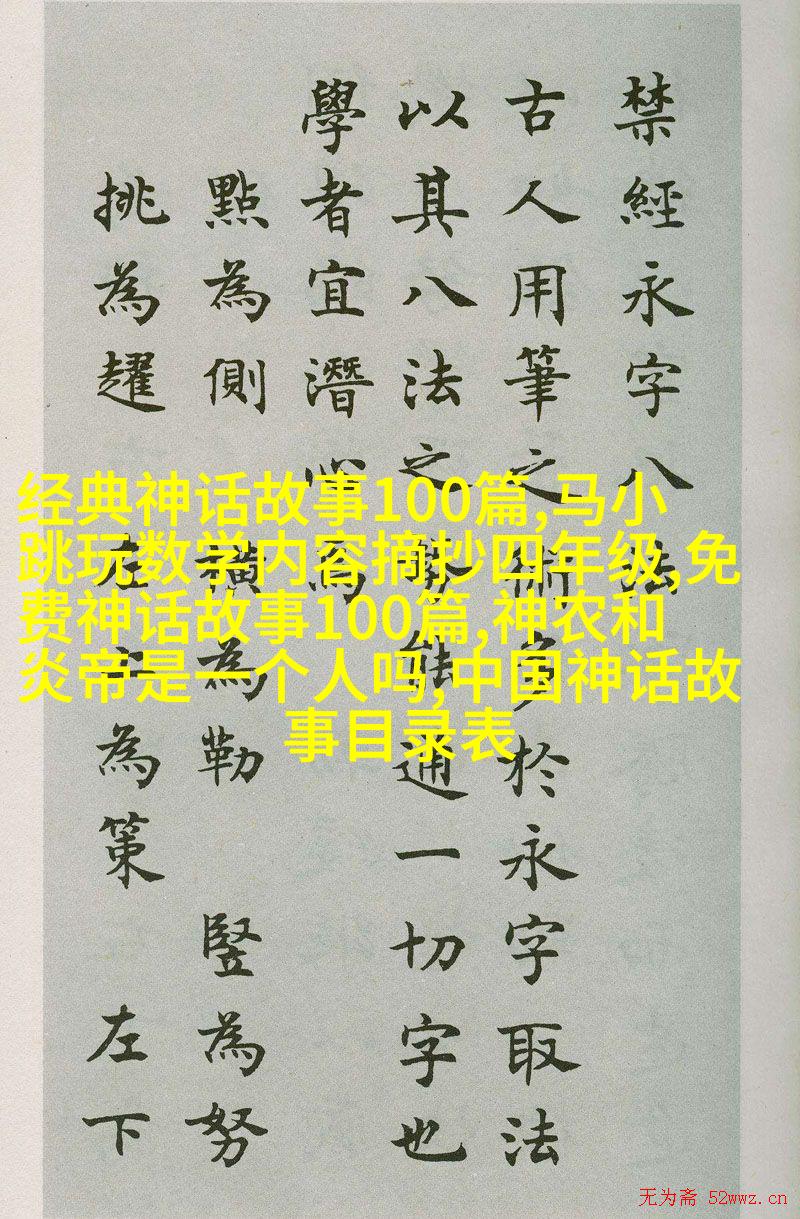 禁經永字八法
古人用筆之術多於永字取法
以其八法之勢能通一切字也
學者宜潛心焉
點為側 橫為勒 豎為努
挑為趯 左上為策 左下
经典神话故事100篇,马小
跳玩数学内容摘抄四年级,免
费神话故事100篇,神农和
炎帝是一个人吗,中国神话故
事目录表
无为斋 52wwz.cn